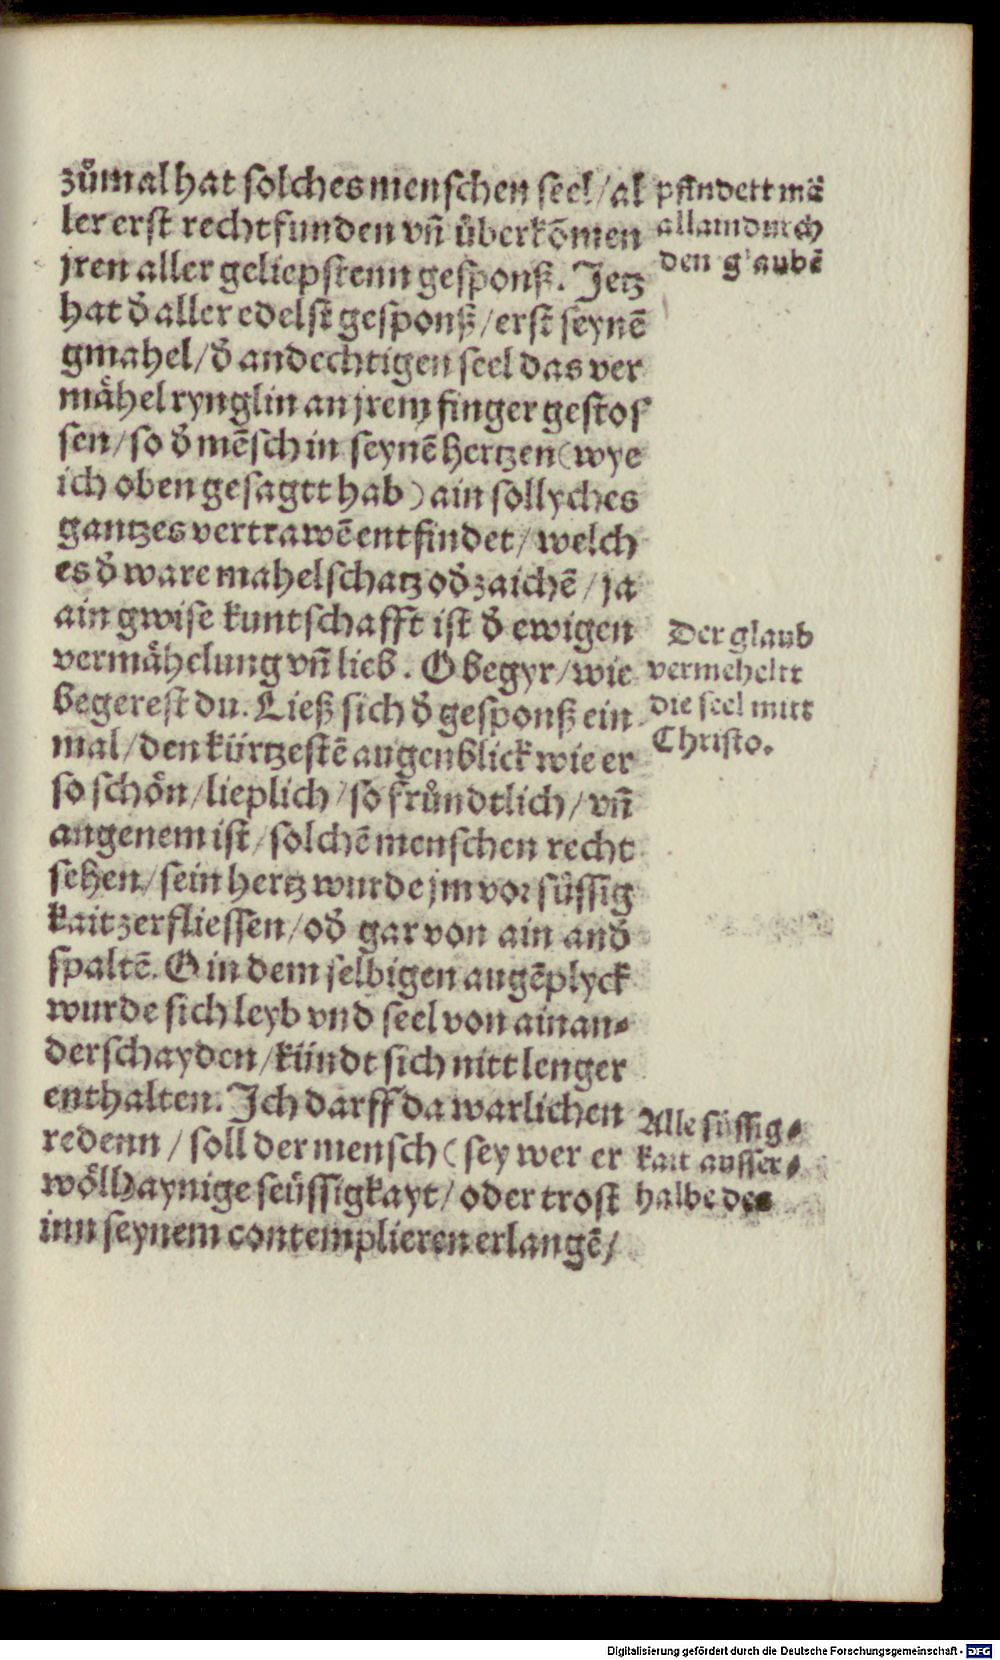 zůmal hat solches menschen seel / al
ler erst recht funden vñ überkõmen
jren aller geliepstenn gesponß. Jetz
hat d̕ aller edelst gesponß / erst seynẽ
gmahel / d̕ andechtigen seel das ver
mähel rynglin an jrem finger gestos
sen / so d̕ mẽsch in seynẽ hertzen ( wye
ich oben gesagtt hab ) ain sollyches
gantzes vertrawẽ entfindet / welch
es d̕ ware mahelschatz od̕ zaichẽ / ja
ain gwise kuntschafft ist d̕ ewigen
vermähelung vñ lieb . O begyr / wie
begerest du. Ließ sich d̕ gesponß ein
mal / den kürtzestẽ augenblick wie er
so schön / lieplich / so frůndtlich / vñ
angenem ist / solchẽ menschen recht
sehen / sein hertz wurde jm vor süssig
kait zerfliessen / od̕ gar von ain and̕
spaltẽ. O in dem selbigen augẽplyck
wurde sich leyb vnd seel von ainan⸗
der schayden / kündt sich nitt lenger
enthalten. Ich darff da warlichen
redenn / soll der mensch ( sey wer er
wöll) haynige seüssigkayt / oder trost
inn seynem contemplieren erlangẽ /
pfindett mã
allain durch
den glaubẽ
Der glaub
vermeheltt
die seel mitt
Christo.
Alle süssig⸗
kait ausser⸗
halbe des
Digitalisierung gefördert durch die Deutsche Forschungsgemeinschaft - DFG